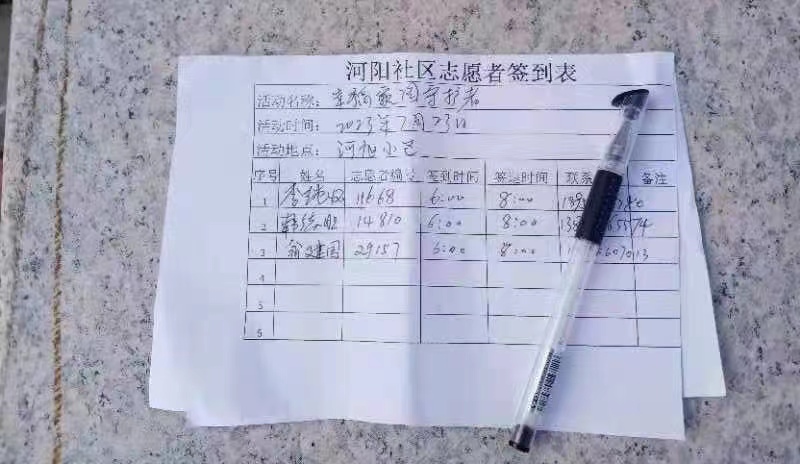 河阳社区志愿者签到表
活动名称：幸福家园守护者
活动时间：2023年7月23日
活动地点：河阳小区
序号 姓名 志愿者编号 签到时间 签退时间 联系 备注
1 李 11668 6:00 8:00
2 韩 14810 6:00 8:00 5574
3 翁建国 29157 6:00 8:00 6070113
4
5
6